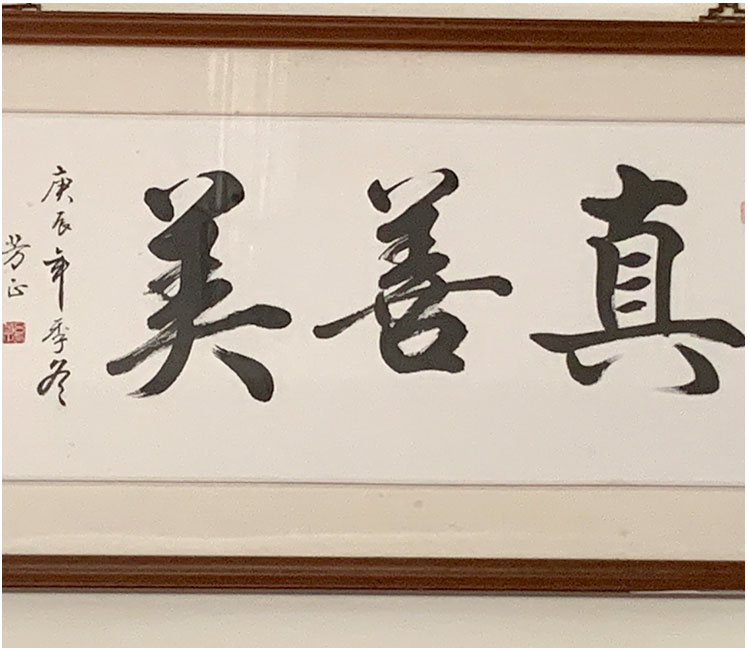 真善美
庚辰年季冬
芳正